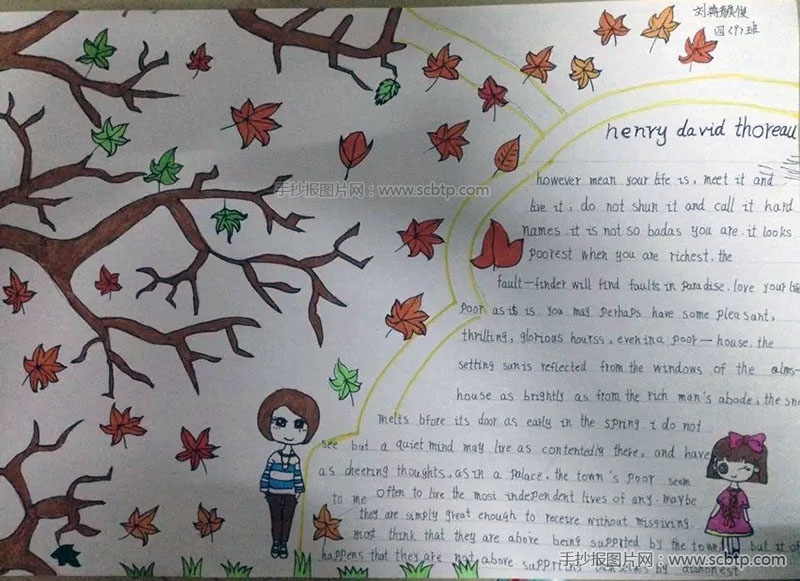 四(9)班
henry david thoreau
however mean your life is, meet it and
live it, do not shun it and call it hard
names. it is not so badas you are. it looks
poorest when you are richest. the
fault-finder will find faults in paradise. love your life
poor as it is. you may perhaps have some pleasant,
thrilling, glorious hourss, even in a poor-house. the
setting sun is reflected from the windows of the alms-
house as brightly as from the rich man's abode; the sne
melts bfore its door as early in the spring. i do not
see but a quiet mind may live as contentedly there, and have
as cheering thoughts, as in a palace. the town's poor seem
to me often to live the most independent lives of any. maybe
they are simply great enough to receive without misgiving.
most think that they are above being supprted by the town; but it of
happens that they are not above supprting by dishonest
手抄报图片网：www.scbtp.com
手抄报图片网：www.scbtp.com